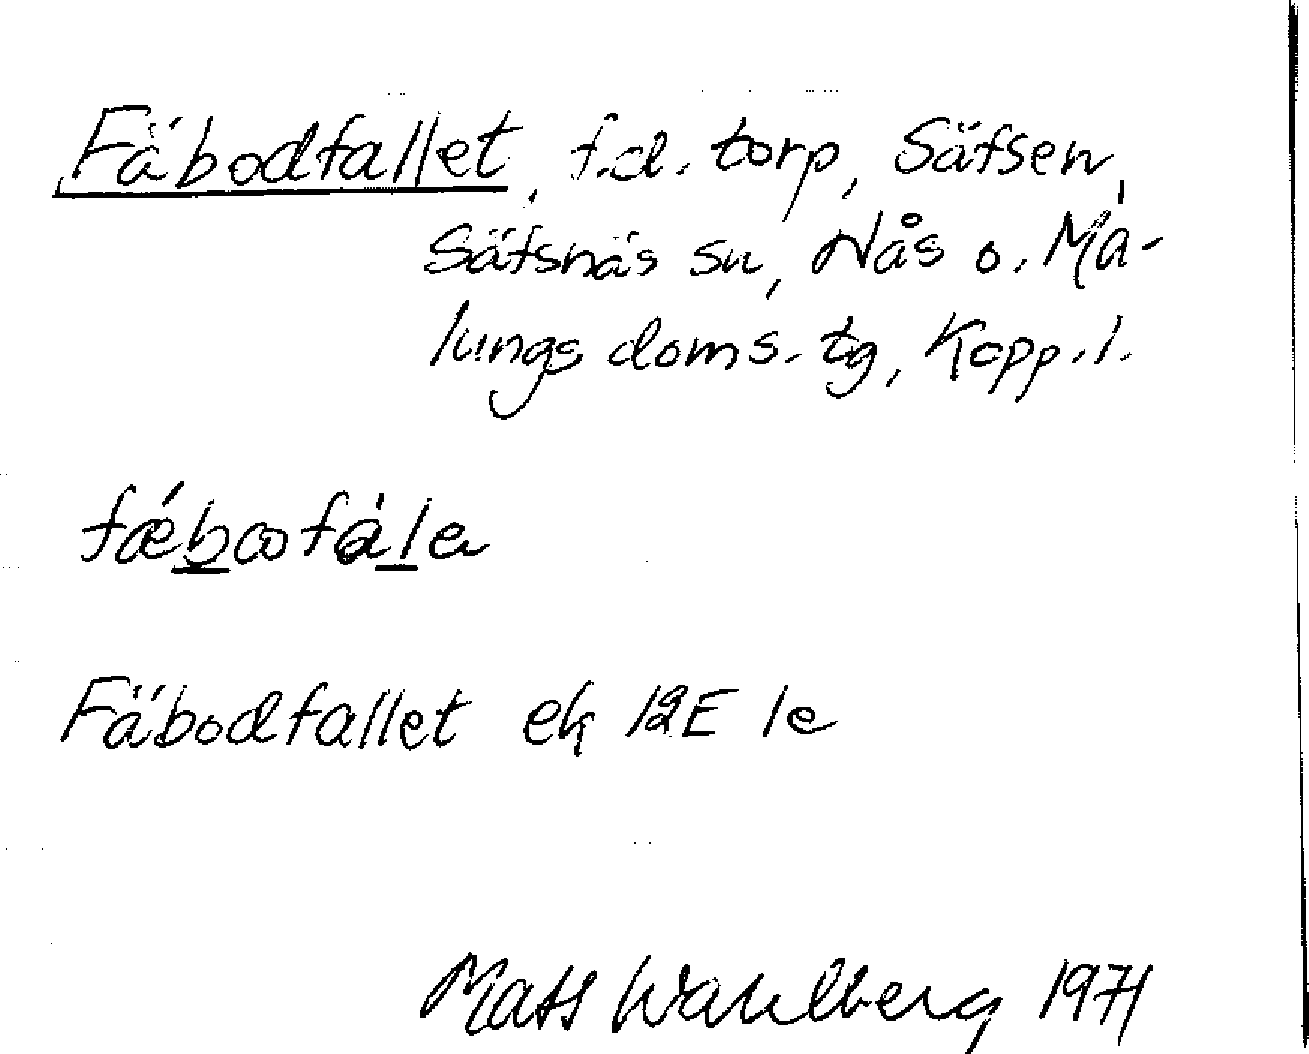 Fäbodfallet, f.d. torp, Säfsen,
Säfsnäs sn, Nås o. Ma-
lungs doms. tg, Kopp. l.
fǽbωofàla
Fäbodfallet ek 12E 1e
Mats Wahlberg 1971